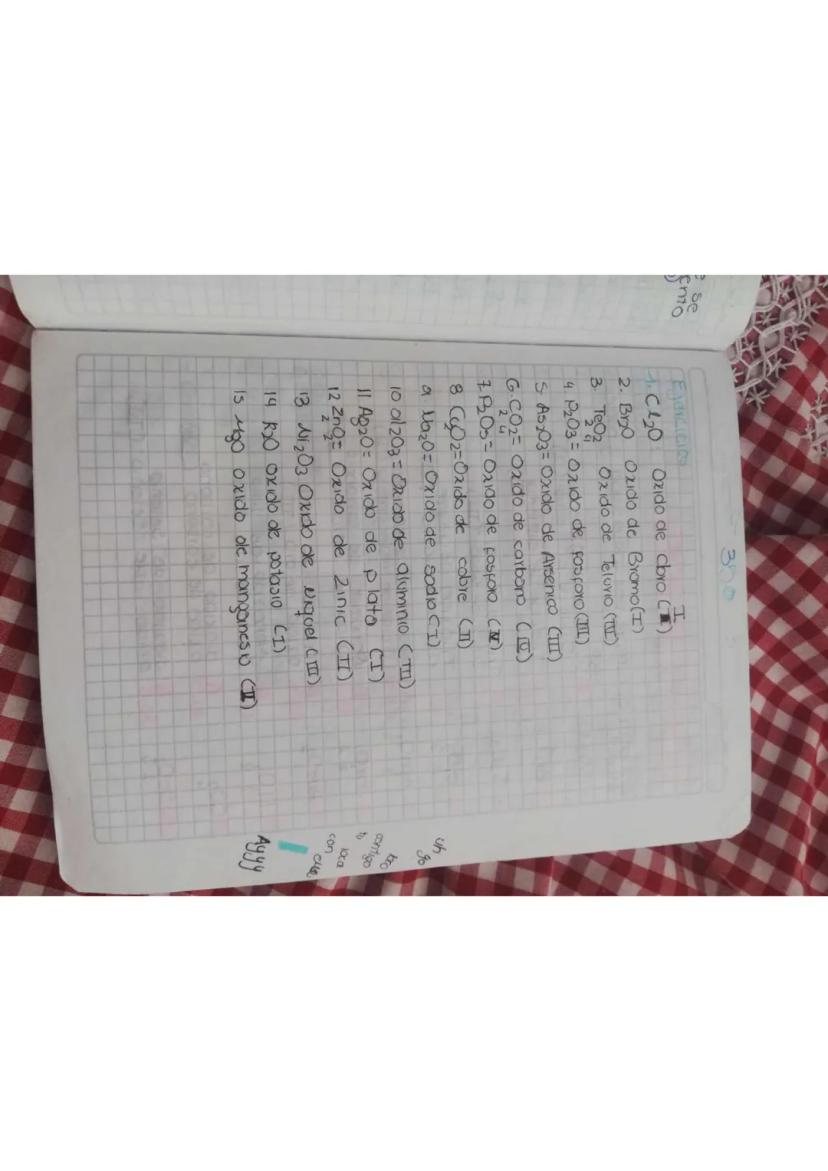 e se
ento
Ejercicios
1. Cl2O Oxido de cloro (I)
2. Br2O Oxido de Bromo (I)
3. TeO2 Oxido de Telurio (IV)
2 4
4 P2O3 = Oxido de fosforo (III)
5. As2O3 = Oxido de Arsenico (III)
6. CO2 = Oxido de carbono (IV)
2 4
7. P2O5 = Oxido de fosforo (V)
8 CuO2 = Oxido de cobre (II)
9. Na2O = Oxido de sodio (I)
10 Al2O3 = Oxido de aluminio (III)
11 Ag2O = Oxido de plata (I)
12 ZnO2 = Oxido de Zinic (II)
2 2
13 Ni2O3 Oxido de Niquel (III)
14 K2O Oxido de potasio (I)
15 MgO oxido de manganesio (II)
contigo
loca
con
Ayyy